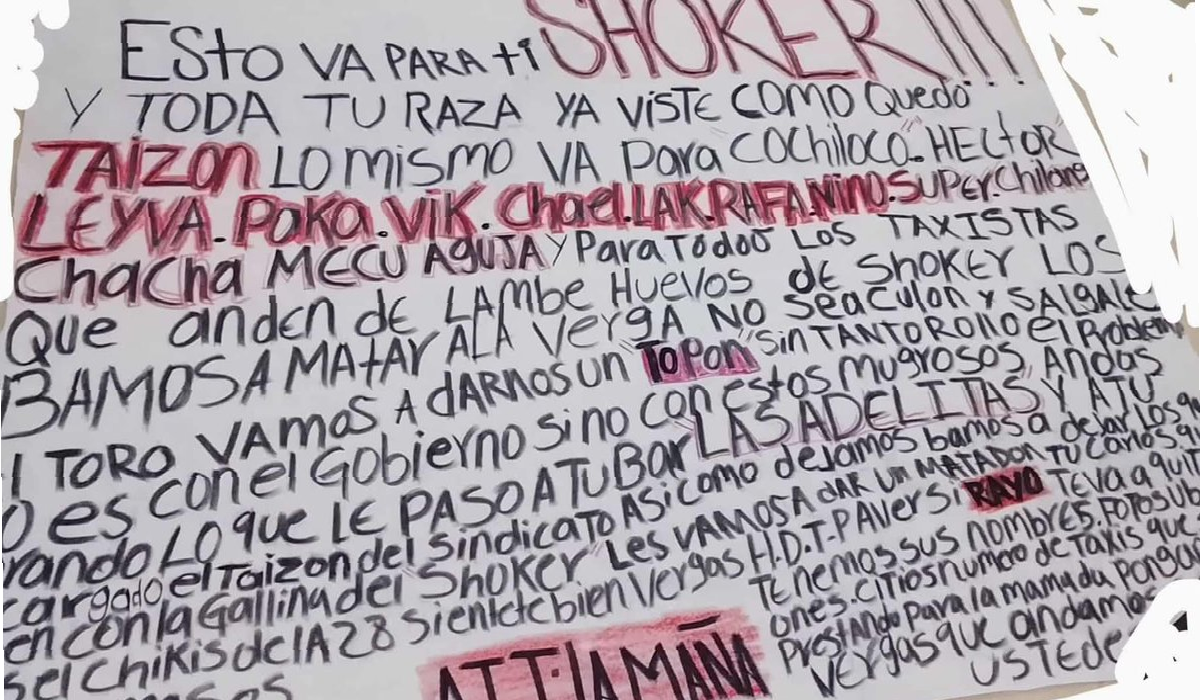 ESto VA PARA ti SHOKER!!!
Y TODA TU RAZA YA ViSTE COMO QuEdO
TAIZON LO MiSMO VA PARA COCHiloCO. HECtOR
LEYVA. PAKA. VIK. Chael. LAK. RAFA. NINO. SUPER. Chilans
ChaCha MECU AGUJA Y PARA TOdOO LOS TAXISTAS
QUE ANdEN dE LAMbE HUEVOS dE SHOKEY LOS
BAMOS A MAtAY A LA VERgA NO SEA CULON Y SALgALE
l TORO VAMOS A dARNOS UN "TOPON" SiN TANTO ROllO El Problem
O es con el Gobierno Si no con estos mugrosos, Andas
rando LO que LE PASO A TU BAR LAS ADELITAS Y A TU
cargado el Taizon del Sindicato Asi como dejamos bamos a dejar los
en con la Gallina del Shoker Les VAMOS A dAR UN MATADON TU Carlos
s el Chikis de lA 28 Sientete bien Vergas H.D.T.P A Ver Si RAYO TE VA a quit
Tenemos sus nombres. Fotos ub
ones. citios numero de taxis que
Prestando Para la mamadu Pongan
Vergas que andamos
USTEDE
ATT: lA MAÑA